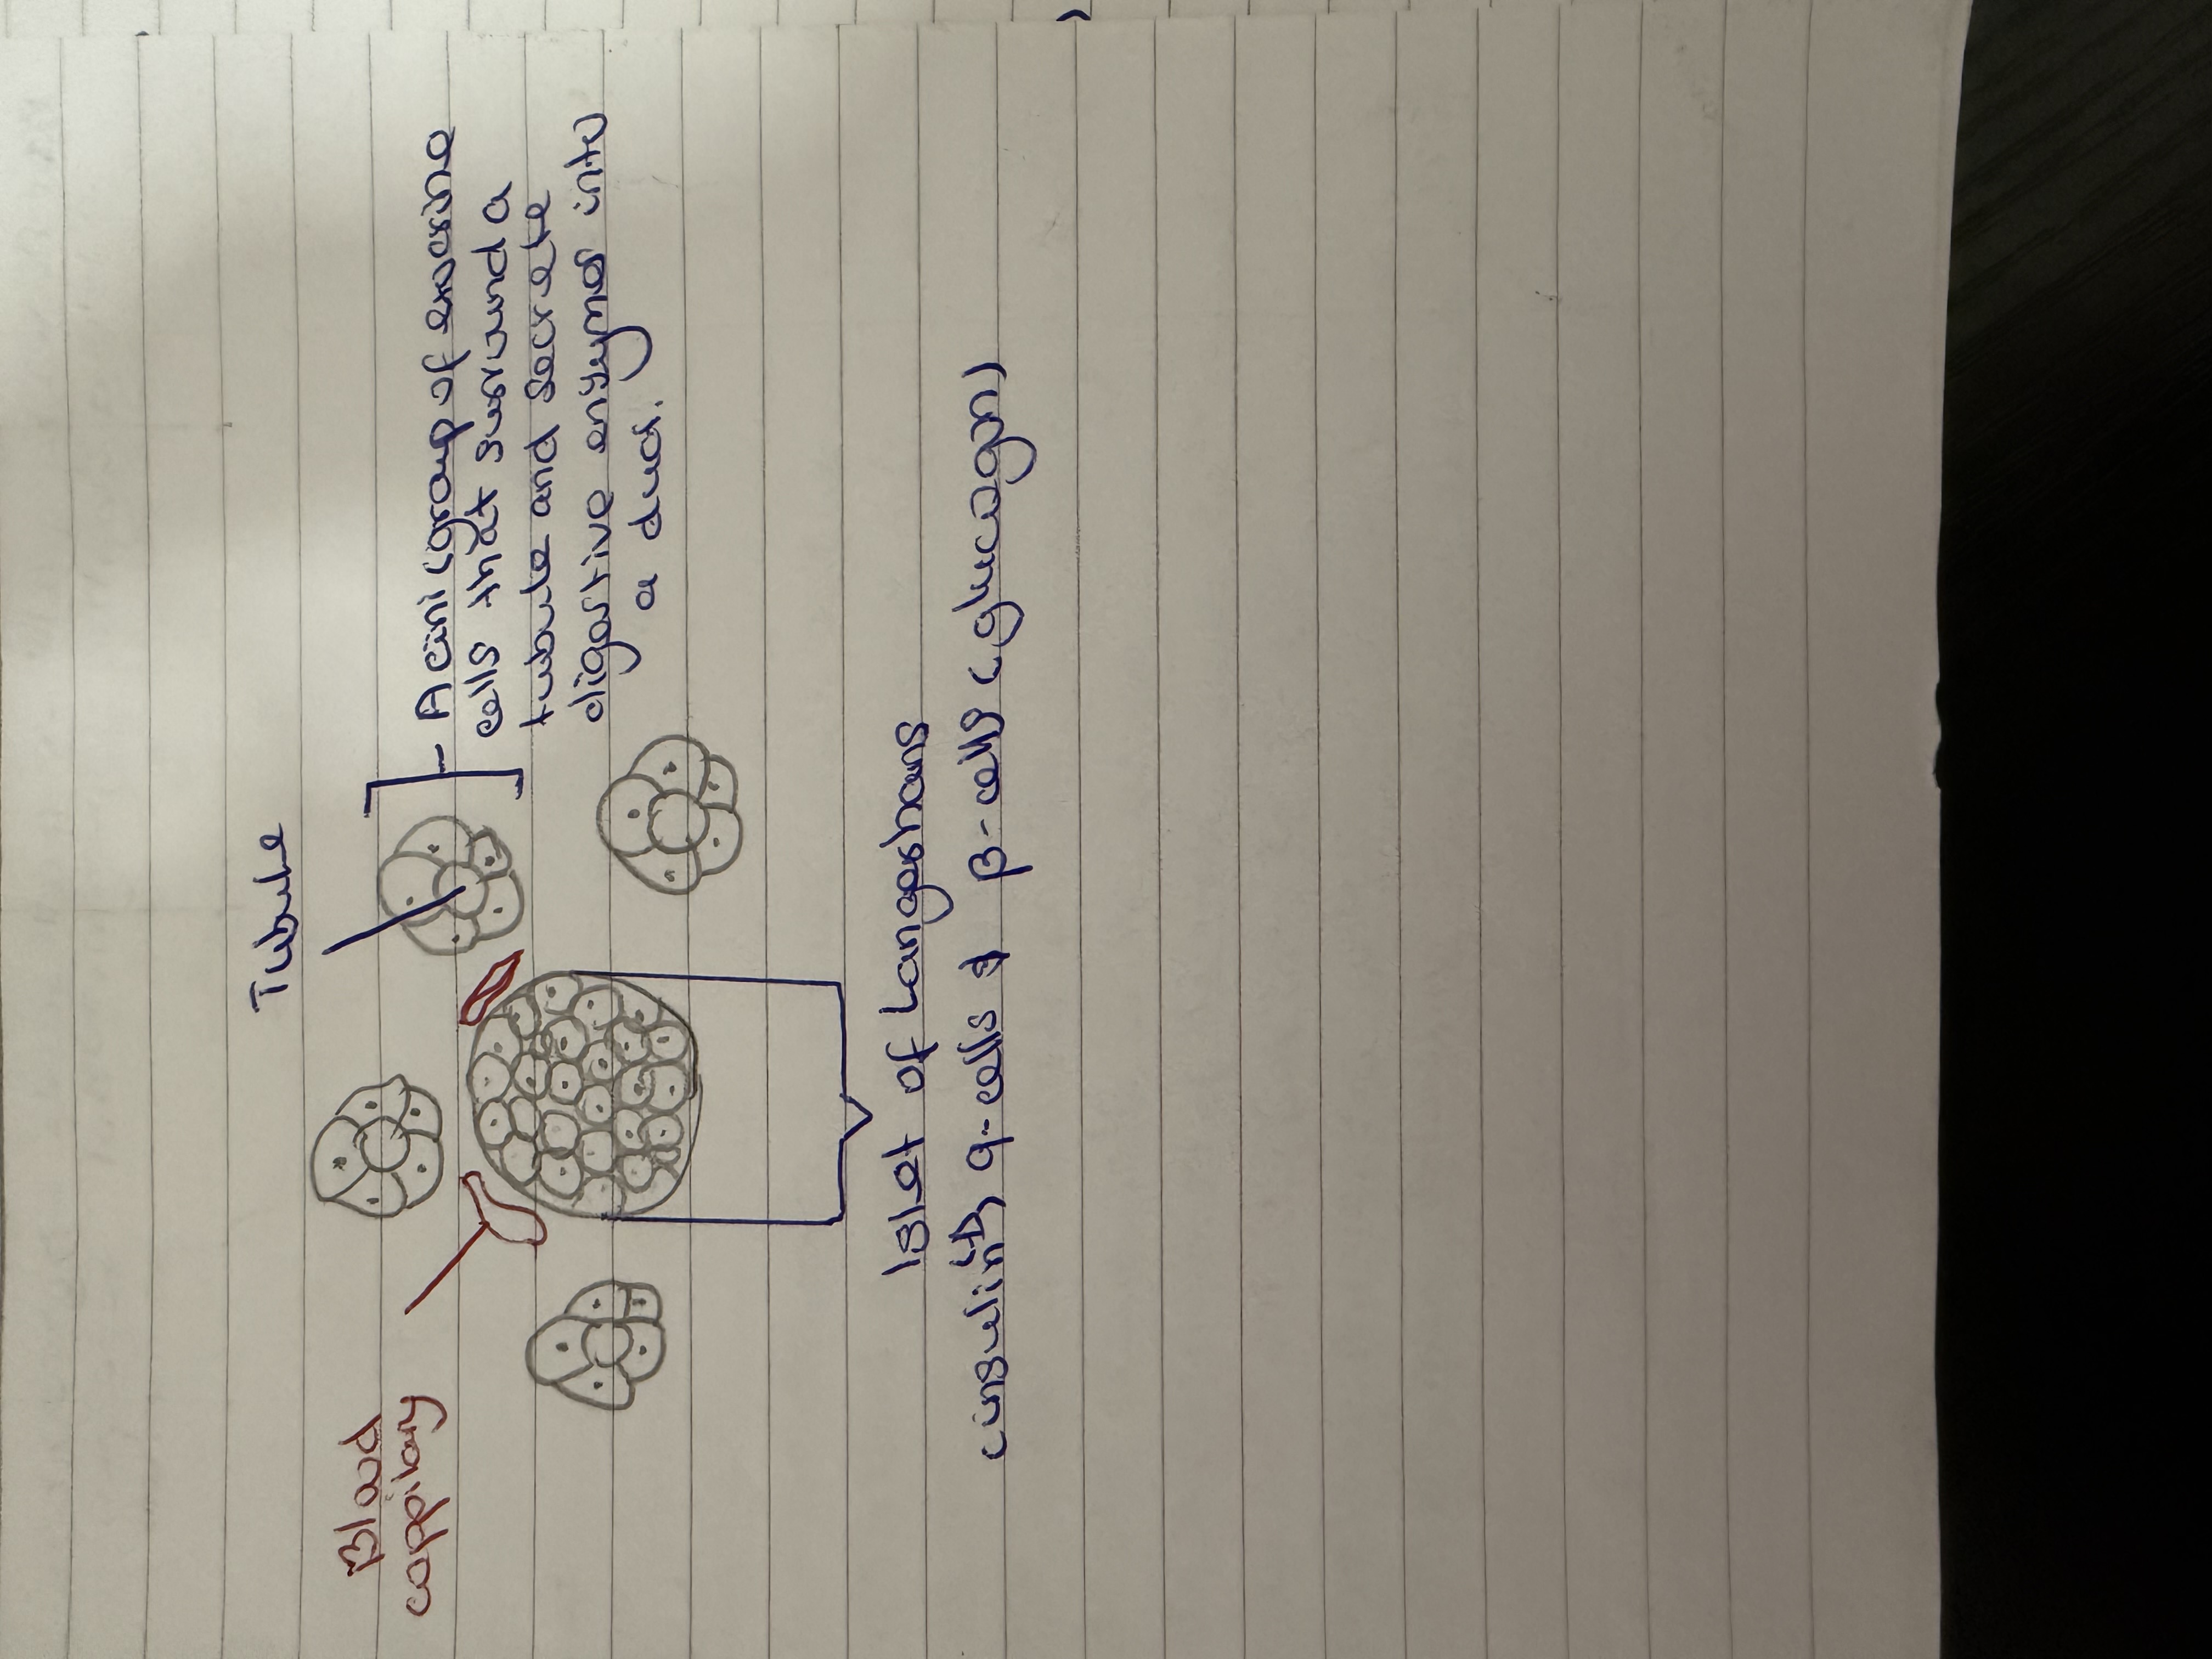 Tubule
Blood
cappilary
- Acini (group of exocrine
cells that surround a
tubule and secrete
digestive enzymes into
a duct.
Islet of Langerhans
(insulin) α-cells & β-cells (glucagon)